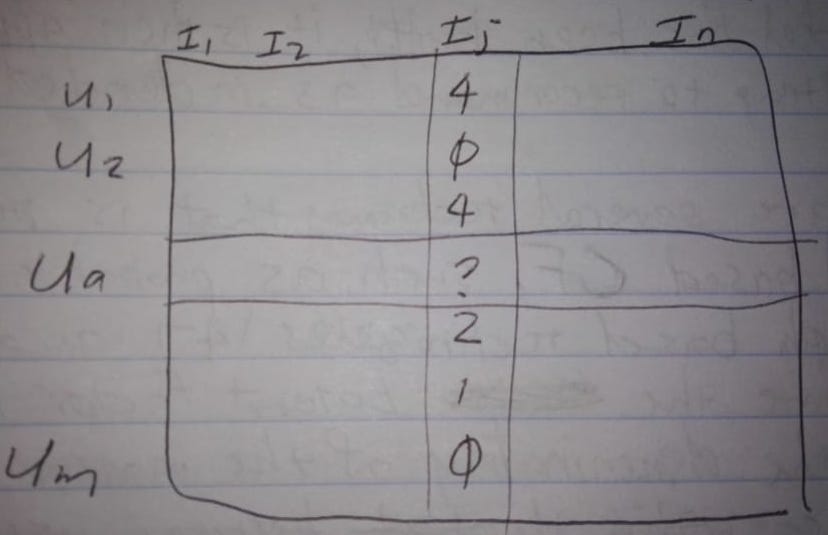 I₁ I₂ Ij In
U₁ 4
U₂ φ
4
Ua ?
2
1
Um φ